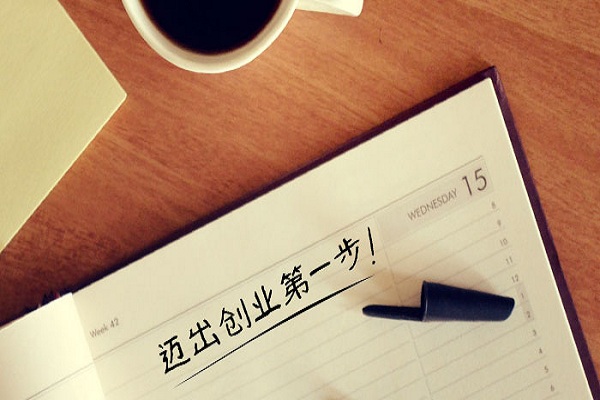 WEDNESDAY 15
Week 42
迈出创业第一步!
8
9
10
11
12
1
2
3
4
5
6